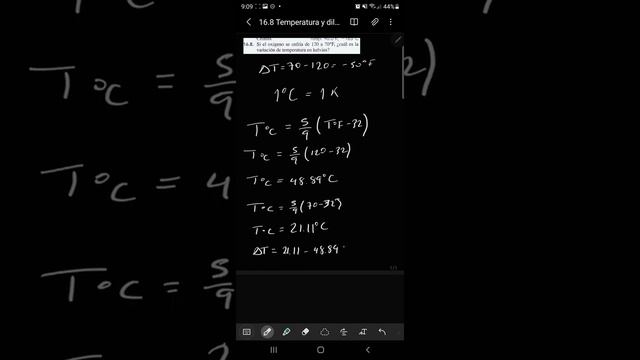 9:09
44%
16.8 Temperatura y dil...
16.8. Si el oxígeno se enfría de 120 a 70°F, ¿cuál es la
variación de temperatura en kelvins?
ΔT = 70 - 120 = -50°F
1°C = 1 K
T°C = 5/9 (T°F - 32)
T°C = 5/9 (120 - 32)
T°C = 48.89°C
T°C = 5/9 (70 - 32)
T°C = 21.11°C
ΔT = 21.11 - 48.89
1/1